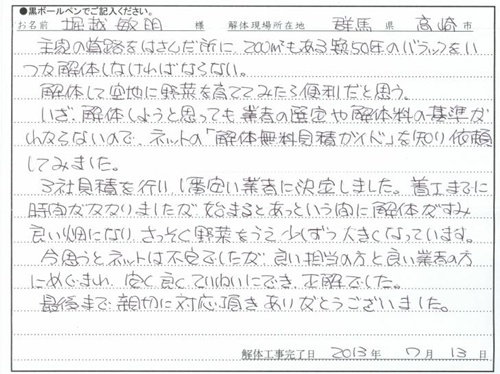 ●黒ボールペンでご記入ください。
お名前 堀越敏明 様 解体現場所在地 群馬 県 高崎 市
主家の道路をはさんだ所に、200㎡もある築50年のバラックをい
つか解体しなければならない。
解体して空地に野菜を育ててみたら便利だと思う。
いざ、解体しようと思っても業者の選定や解体料の基準が
わからないので、ネットの「解体無料見積ガイド」を知り依頼
してみました。
3社見積を行い、1番安い業者に決定しました。着工までに
時間がかかりましたが、始まるとあっという間に解体がすみ
良い畑になり、さっそく野菜をうえ少しずつ大きくなっています。
今思うとネットは不安でしたが、良い担当の方と良い業者の方
にめぐまれ、安く良くていねいにでき、正解でした。
最後まで親切に対応頂きありがとうございました。
解体工事完了日 2013年 7月 13日